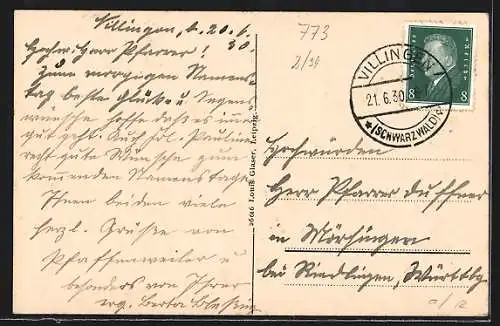 Villingen, d. 20. 6.
30.
Hochw. Herr Pfarrer!
Zum morgigen Namens-
tag beste Glück- u. Segens-
wünsche hoffe daß es immer
gut geht. Auch Frl. Pauline
recht gute Wünsche zum
kommenden Namenstage.
Ihnen beiden viele
herzl. Grüße von
Pfaffenweiler u.
besonders von Ihrer
erg. Berta Blessing
26616 Louis Glaser, Leipzig.
773
8
8
VILLINGEN
21. 6. 30
(SCHWARZWALD)
Hochwürden
Herr Pfarrer Duffner
in Mörsingen
bei Riedlingen, Württbg